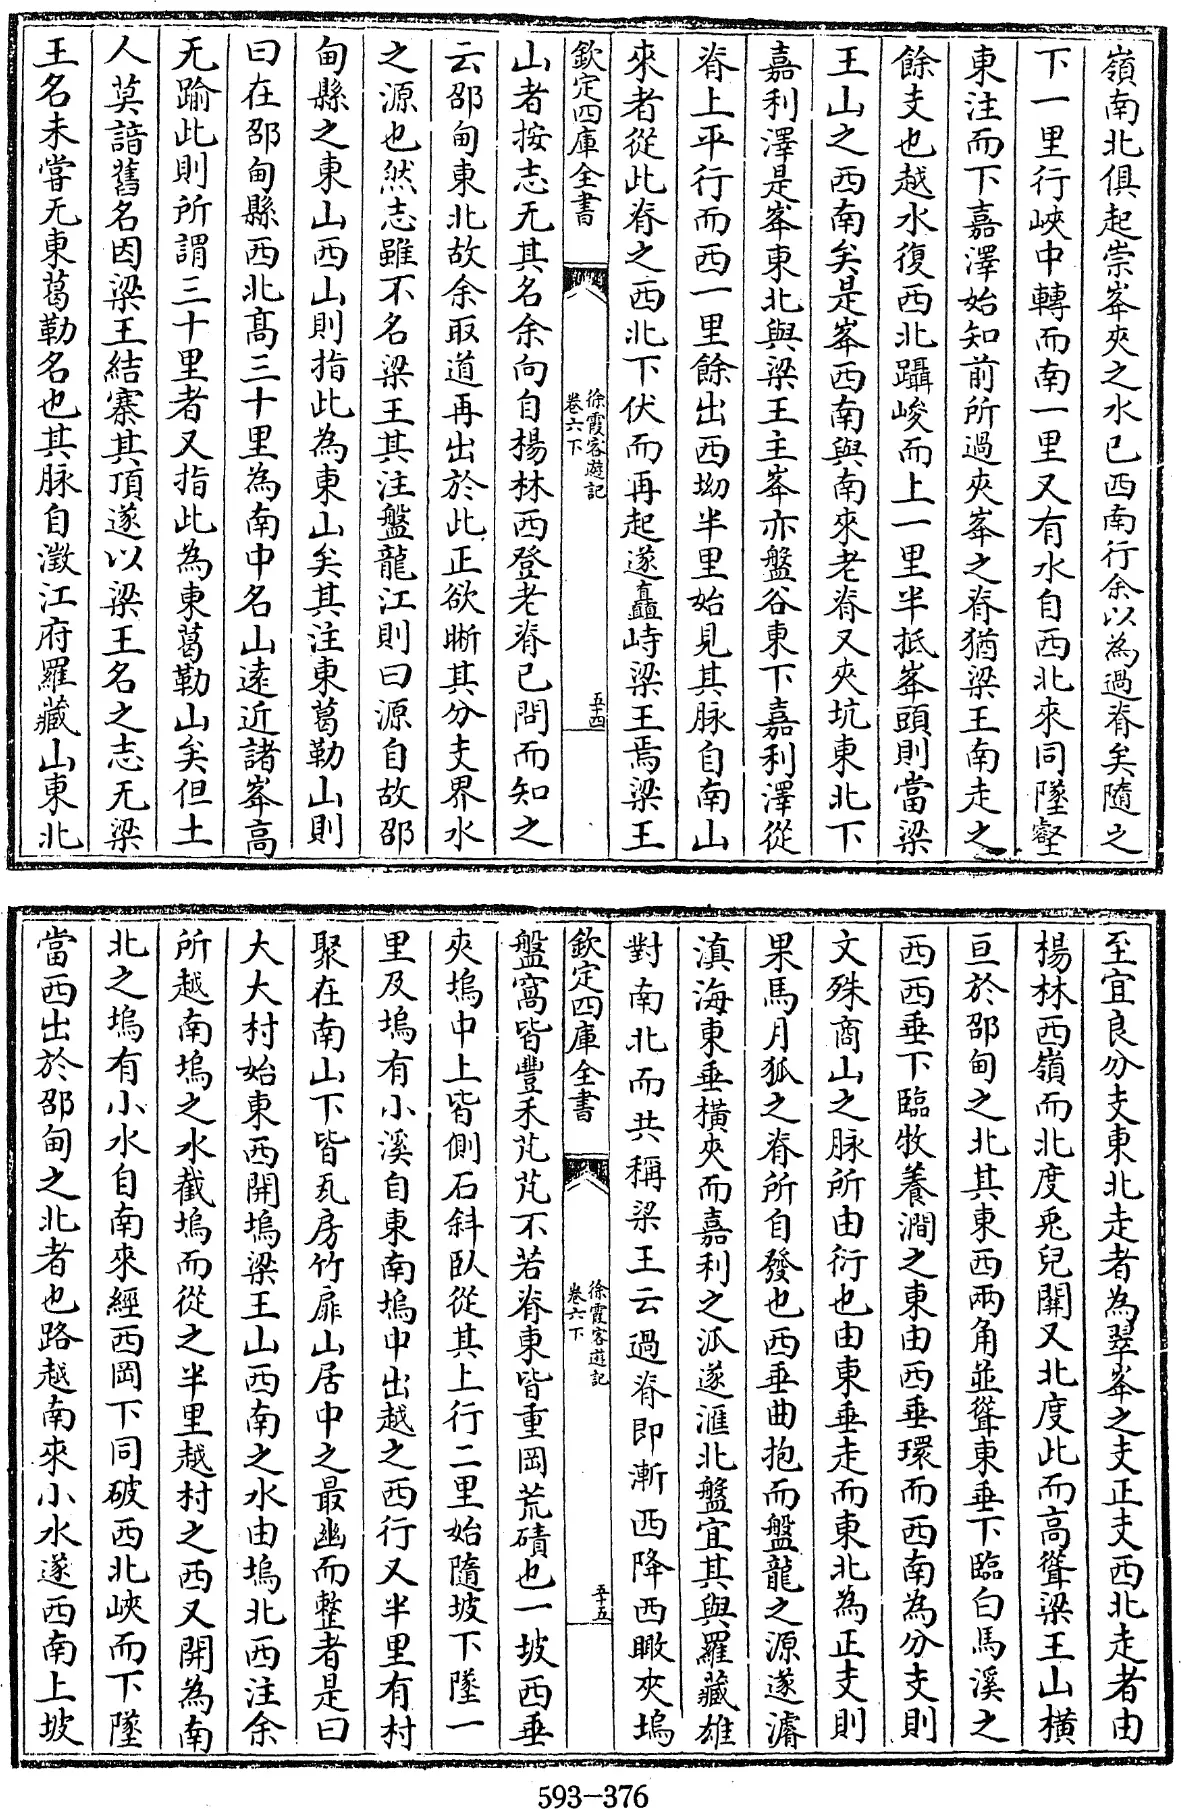 嶺南北俱起崇峯夾之水已西南行余以為過脊矣隨之
下一里行峽中轉而南一里又有水自西北來同墜壑
東注而下嘉澤始知前所過夾峯之脊猶梁王南走之
餘支也越水復西北躡峻而上一里半抵峯頭則當梁
王山之西南矣是峯西南與南來老脊又夾坑東北下
嘉利澤是峯東北與梁王主峯亦盤谷東下嘉利澤從
脊上平行而西一里餘出西坳半里始見其脉自南山
來者從此脊之西北下伏而再起遂矗峙梁王焉梁王
欽定四庫全書
徐霞客遊記
卷六下
五十四
山者按志无其名余向自楊林西登老脊已問而知之
云邵甸東北故余取道再出於此正欲晰其分支界水
之源也然志雖不名梁王其注盤龍江則曰源自故邵
甸縣之東山西山則指此為東山矣其注東葛勒山則
曰在邵甸縣西北髙三十里為南中名山遠近諸峯髙
无踰此則所謂三十里者又指此為東葛勒山矣但土
人莫諳舊名因梁王結寨其頂遂以梁王名之志无梁
王名未嘗无東葛勒名也其脉自澂江府羅藏山東北
至宜良分支東北走者為翠峯之支正支西北走者由
楊林西嶺而北度兎兒關又北度此而高聳梁王山橫
亘於邵甸之北其東西兩角並聳東垂下臨白馬溪之
西西垂下臨牧養澗之東由西垂環而西南為分支則
文殊商山之脉所由衍也由東垂走而東北為正支則
果馬月狐之脊所自發也西垂曲抱而盤龍之源遂濬
滇海東垂橫夾而嘉利之派遂滙北盤宜其與羅藏雄
對南北而共稱梁王云過脊即漸西降西瞰夾塢
欽定四庫全書
徐霞客遊記
卷六下
五十五
盤窩皆豐禾芃芃不若脊東皆重岡荒磧也一坡西垂
夾塢中上皆側石斜臥從其上行二里始隨坡下墜一
里及塢有小溪自東南塢中出越之西行又半里有村
聚在南山下皆瓦房竹扉山居中之最幽而整者是曰
大大村始東西開塢梁王山西南之水由塢北西注余
所越南塢之水截塢而從之半里越村之西又開為南
北之塢有小水自南來經西岡下同破西北峽而下墜
當西出於邵甸之北者也路越南來小水遂西南上坡
593-376